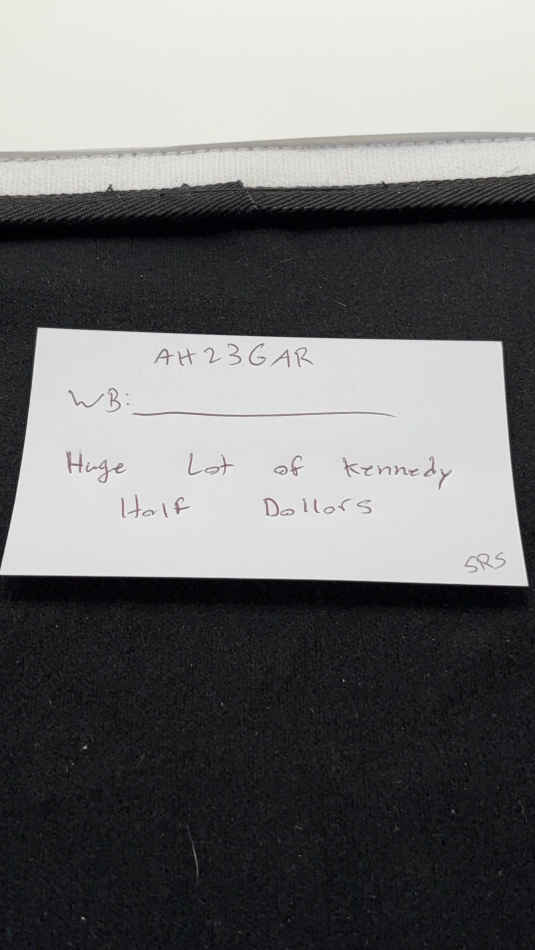 AH23GAR
WB:
Huge Lot of Kennedy
Half Dollars
SRS